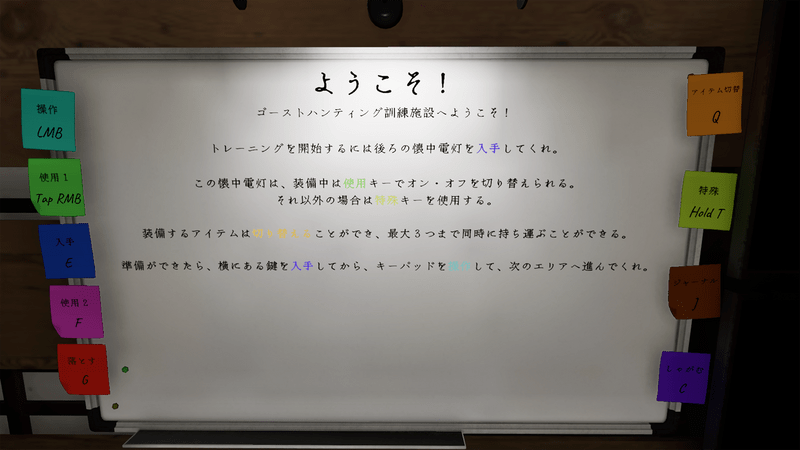 ようこそ！
ゴーストハンティング訓練施設へようこそ！
トレーニングを開始するには後ろの懐中電灯を入手してくれ。
この懐中電灯は、装備中は使用キーでオン・オフを切り替えられる。
それ以外の場合は特殊キーを使用する。
装備するアイテムは切り替えることができ、最大３つまで同時に持ち運ぶことができる。
準備ができたら、横にある鍵を入手してから、キーパッドを操作して、次のエリアへ進んでくれ。
操作
LMB
使用１
Tap RMB
入手
E
使用２
F
落とす
G
アイテム切替
Q
特殊
Hold T
ジャーナル
J
しゃがむ
C